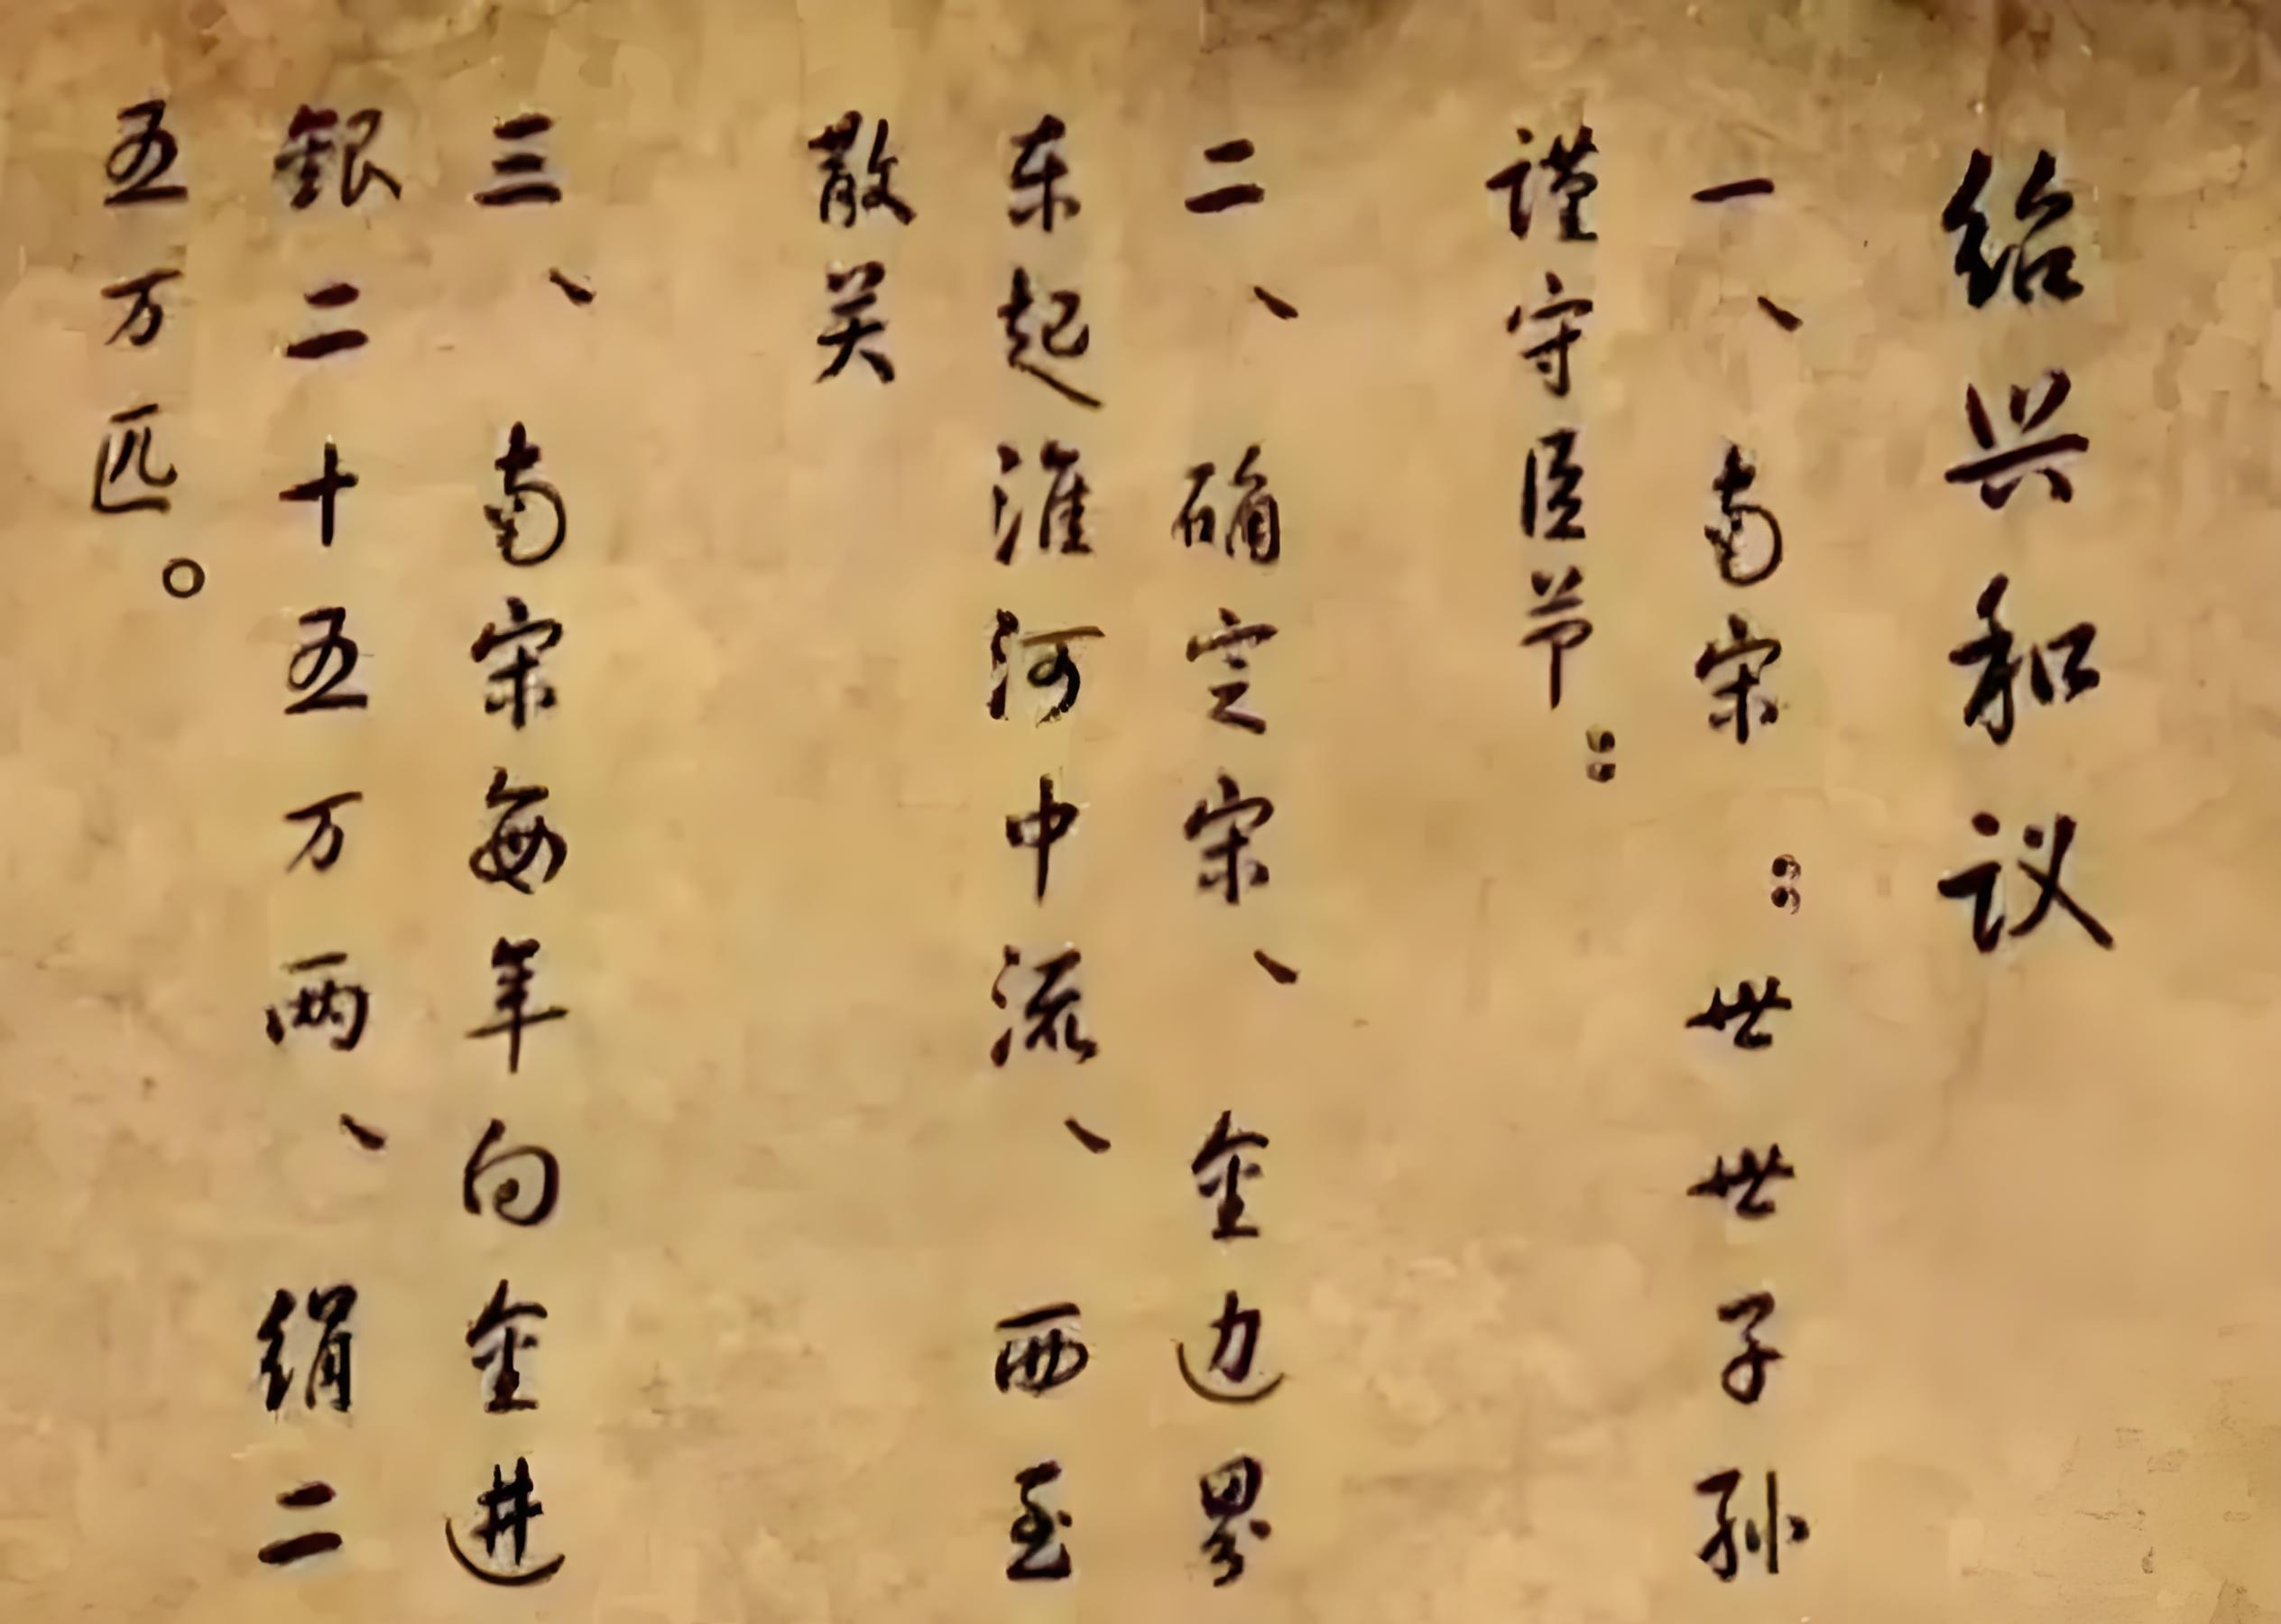 绍兴和议
一、南宋：世世子孙
谨守臣节：
二、确定宋、金边界
东起淮河中流、西至
散关
三、南宋每年向金进
銀二十五万两、绢二
五万匹。